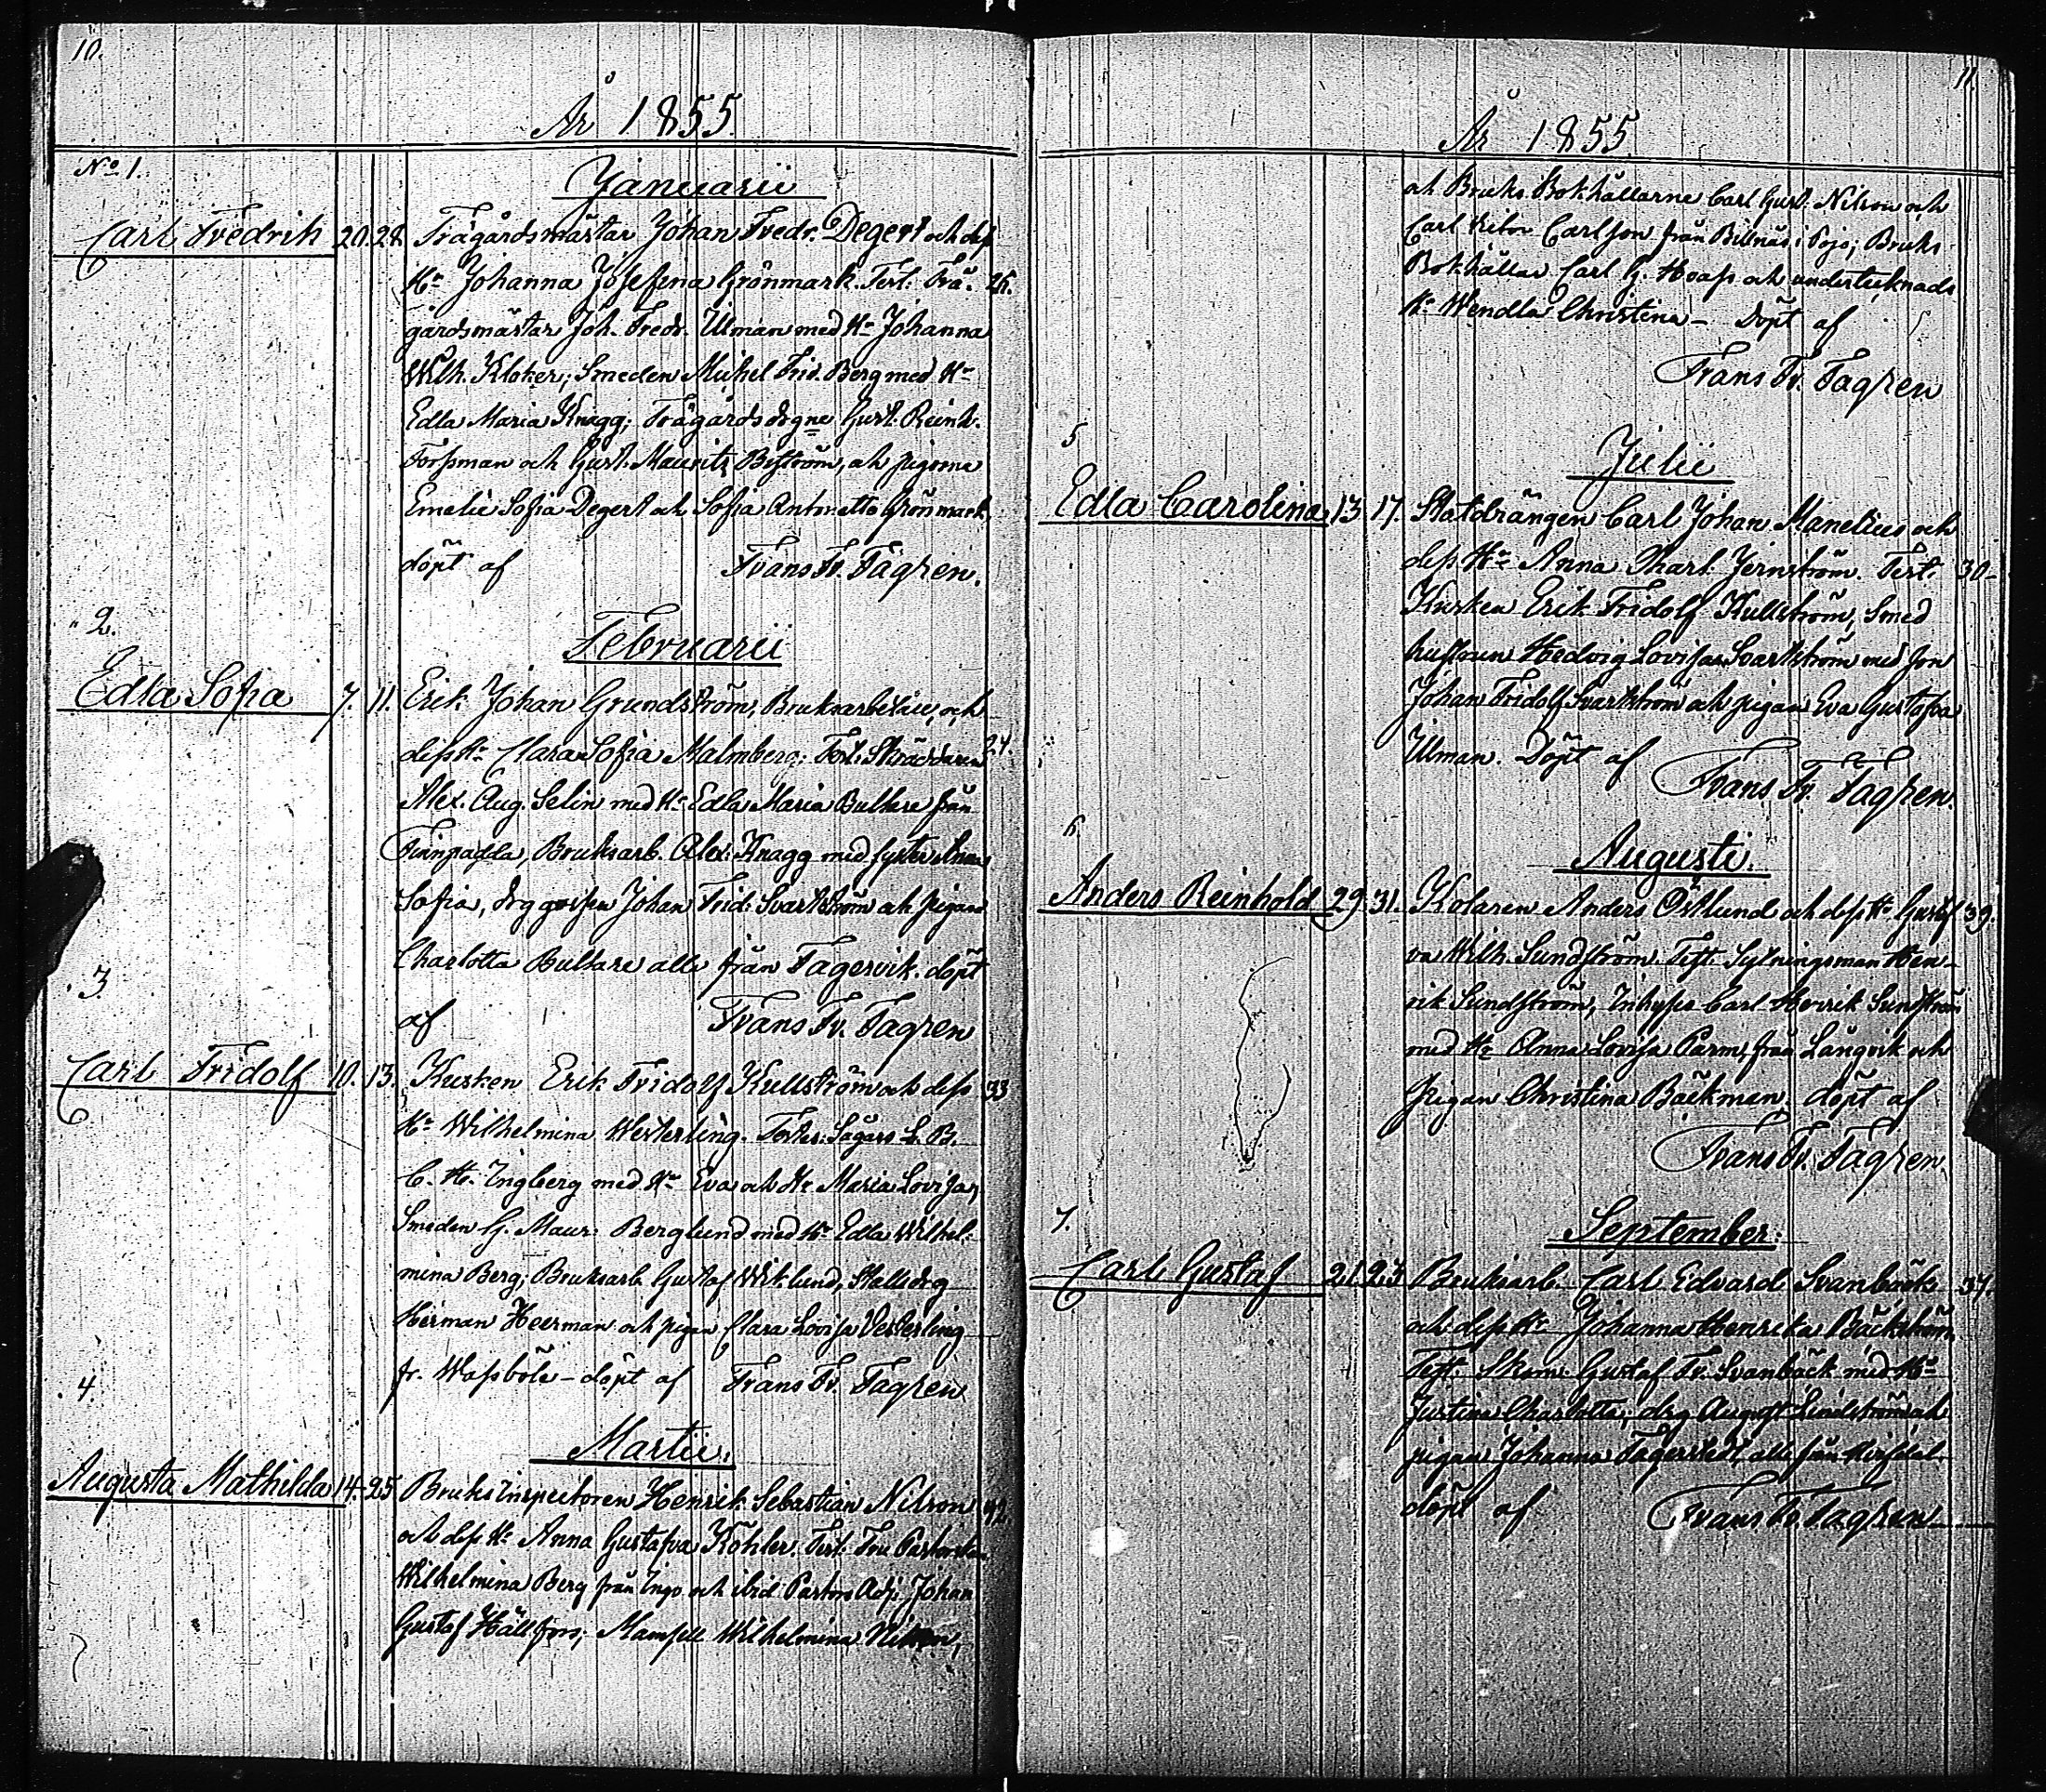 10.
År 1855.
No. 1.
Januarii
Carl Fredrik 20. 28. Trägårdsmästar Johan Fredr. Degert och dess
Hu Johanna Josefina Grönmark. Test: Trä- 26.
gårdsmästar Joh. Fredr. Ulman med Hu Johanna
Wilh. Kloker; Smeden Michel Frid. Berg med Hu
Edla Maria Knagg; Trägårdsdrgne Gust. Reinh.
Forssman och Gust. Mauritz Biström, och pigorna
Emelie Sofia Degert och Sofia Antonetta Grönmark,
döpt af Frans Fr. Fagren.
2.
Februarii
Edla Sofia 7. 11. Erik Johan Grundström, Bruksarbetare, och
dess Hu Clara Sofia Malmberg; Test: Skräddaren 24.
Alex. Aug. Selin med Hu Edla Maria Bultare från
Finnpadda, Bruksarb. Alex: Knagg med syster Anna
Sofia, drg gossen Johan Frid: Svartström och pigan
Charlotta Bultare alla från Fagervik. döpt
3.
af Frans Fr. Fagren
Carl Fridolf 10. 13. Kusken Erik Fridolf Kullström och dess 33
Hu Wilhelmina Westerling. Testes: Sågars L. B.
C. H. Ingberg med Hu Eva och Hu Maria Lovisa,
Smeden G. Maur: Berglund med Hu Edla Wilhel-
mina Berg; Bruksarb. Gustaf Wiklund, Stalldrg
Herman Heerman och pigan Clara Lovisa Vesterling
fr. Wassböle – döpt af Frans Fr. Fagren
4.
Martii.
Augusta Mathilda 14. 25. Bruks Inspectoren Henrik Sebastian Nilson 42.
och dess Hu Anna Gustafva Köhler. Test: Fru Pastorskan
Wilhelmina Berg från Ingo och ibid Pastors Adj. Johan
Gustaf Hällfors; Mamsell Wilhelmina Nilson,
11.
År 1855.
och Bruks Bokhållarne Carl Gust. Nilson och
Carl Victor Carlson från Billnäs i Pojo; Bruks
Bokhållar Carl G. Hoass och undertecknads
Hu Wendla Christina – Döpt af
Frans Fr. Fagren
5
Julii
Edla Carolina 13 17. Statdrängen Carl Johan Manelius och
dess Hu Anna Charl. Jernström. Test: 30
Kusken Erik Fridolf Kullström, Smed
hustrun Hedvig Lovisa Svartström med son
Johan Fridolf Svartström och pigan Eva Gustafva
Ulman. Döpt af Frans Fr. Fagren.
6.
Augusti.
Anders Reinhold 29. 31. Kolaren Anders Östlund och dess Hu Gustaf 39.
va Wilh. Sundström. Test. Sytningsman Hen-
rik Sundström, Inhyses Carl Henrik Sundström
med Hu Anna Lovisa Parm, från Långvik och
Pigan Christina Bäckman. döpt af
Frans Fr. Fagren
7.
September.
Carl Gustaf 21. 23. Bruksarb. Carl Edvard Svanbäck 37.
och dess Hu Johanna Henrika Bäckström
Test. Skom. Gustaf Fr. Svanbäck med Hu
Justina Charlotta, drg August Lindström och
pigan Johanna Fagerstedt alla från
döpt af Frans Fr. Fagren